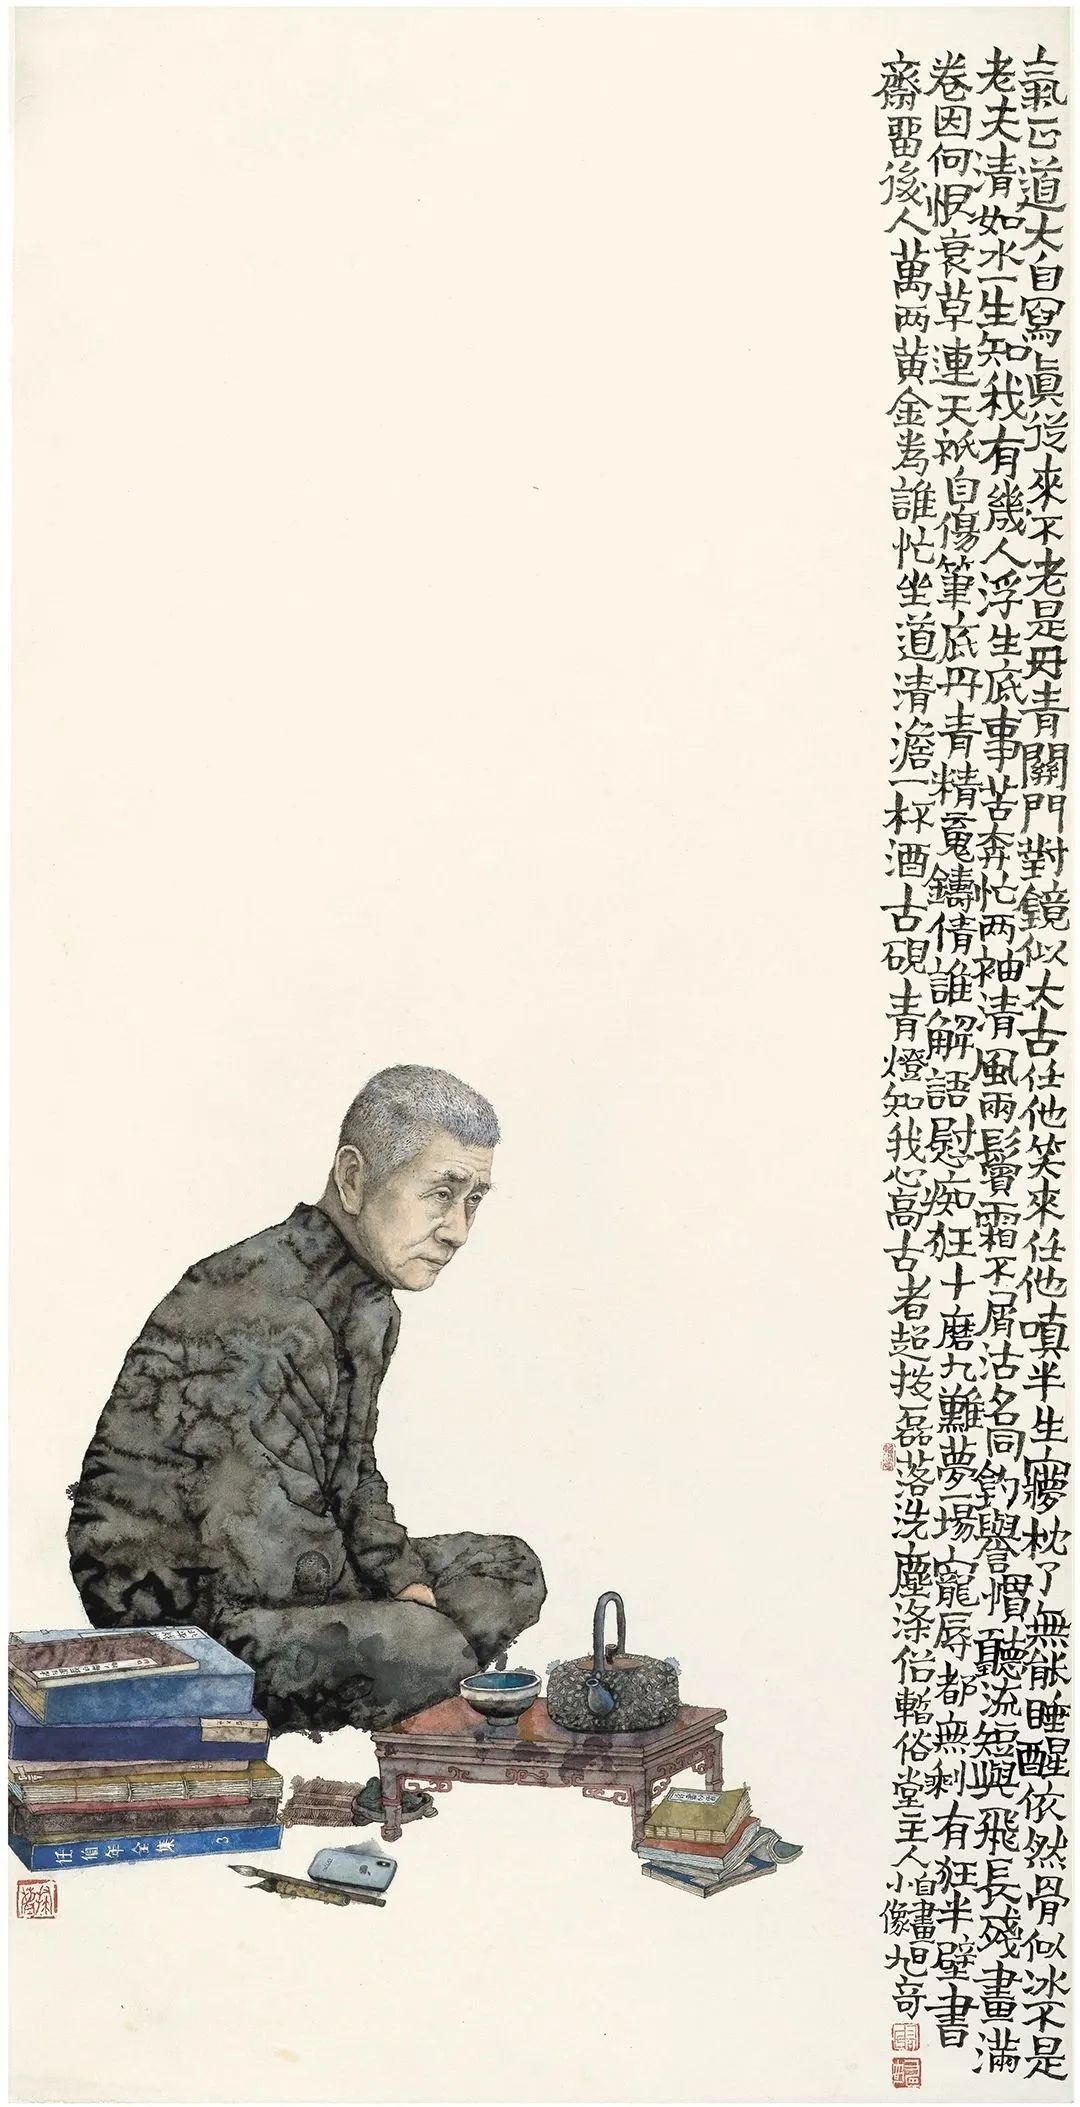 氣正道大自寫真從來不老是丹青關門對鏡似太古任他笑來任他嗔半生㝱枕了無能睡醒依然骨似冰不是
老夫清如水一生知我有幾人浮生底事苦奔忙两袖清風雨鬢霜不屑沽名同釣譽慣聽流短與飛長殘畫滿
卷因何恨衰草連天衹自傷筆底丹青精䰟鑄倩誰解語慰痴狂十磨九難夢一場寵辱都無剩有狂半壁書
齋畱後人萬两黄金為誰忙坐道清澹一杯酒古硯青燈知我心高古者超拔磊落洗塵滌俗暫俗堂主人自畫小像旭奇
任伯年全集 3